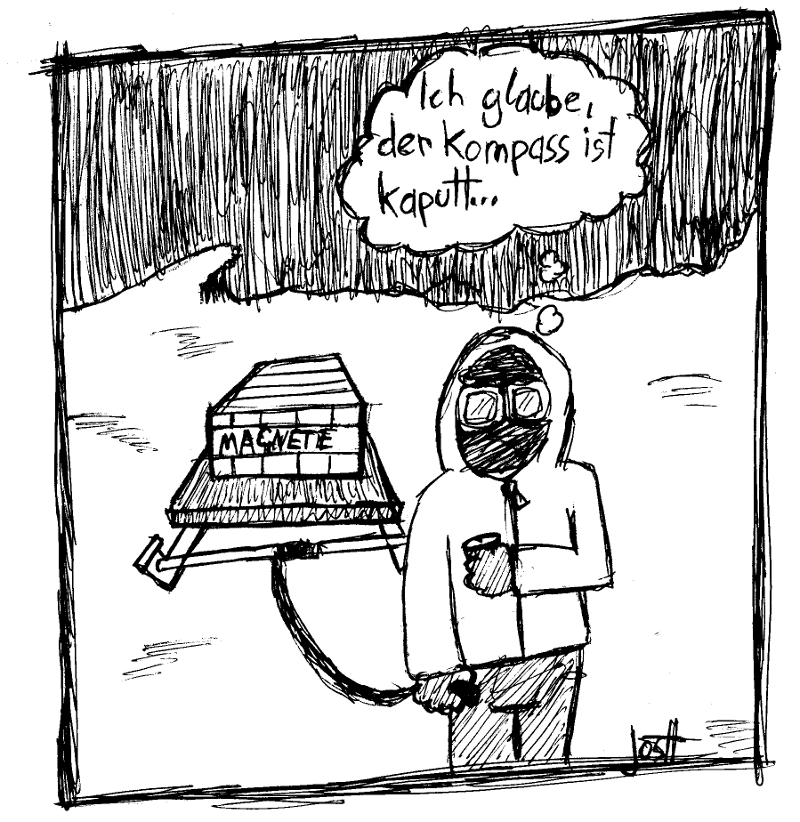 Ich glaube,
der Kompass ist
kaputt...
MAGNETE
JOSTT